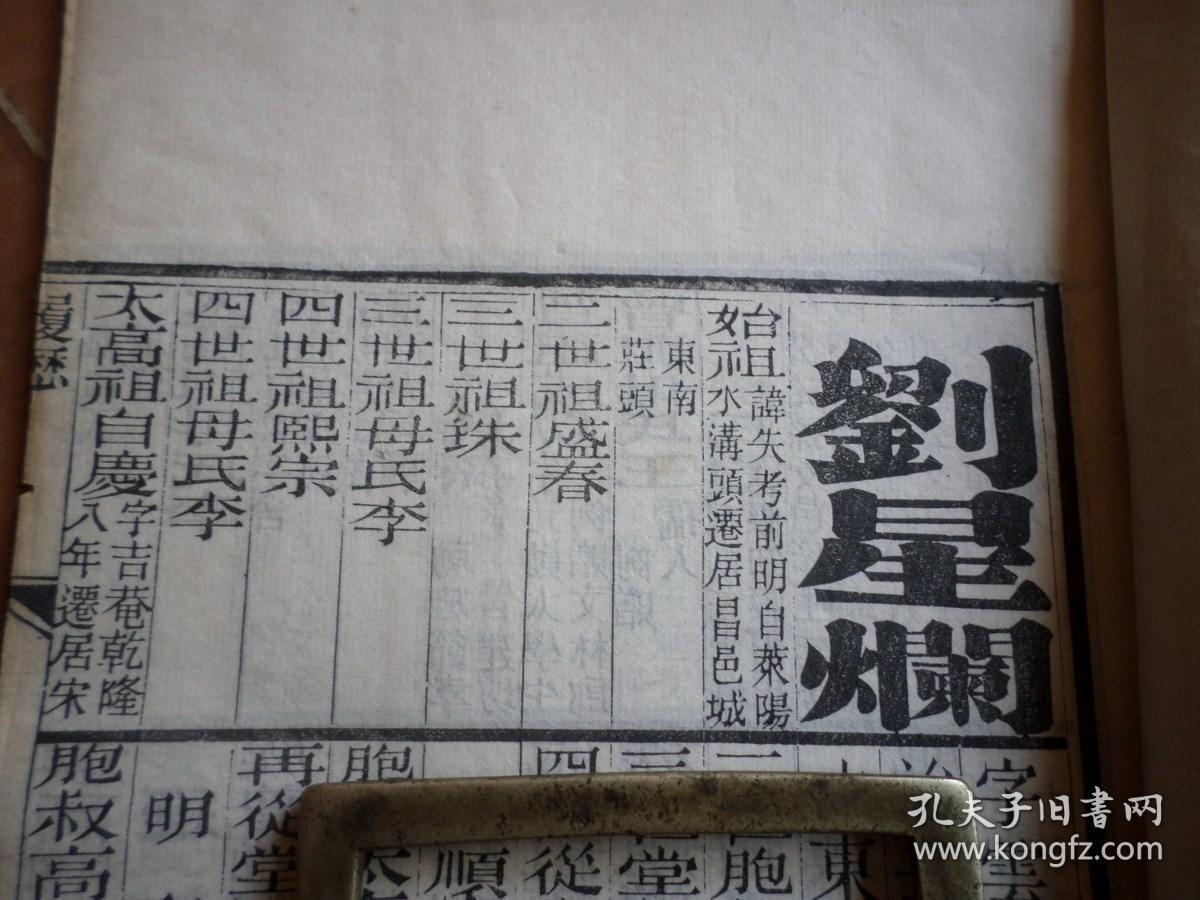 劉星爛
始祖諱失考前明自萊陽
水溝頭遷居昌邑城
東南
莊頭
二世祖盛春
三世祖珠
三世祖母氏李
四世祖熙宗
四世祖母氏李
太高祖自慶字吉菴乾隆
八年遷居宋
履歷
字
東
胞
堂
四從
順
胞
再從堂
明
胞叔高
孔夫子旧书网
www.kongfz.com